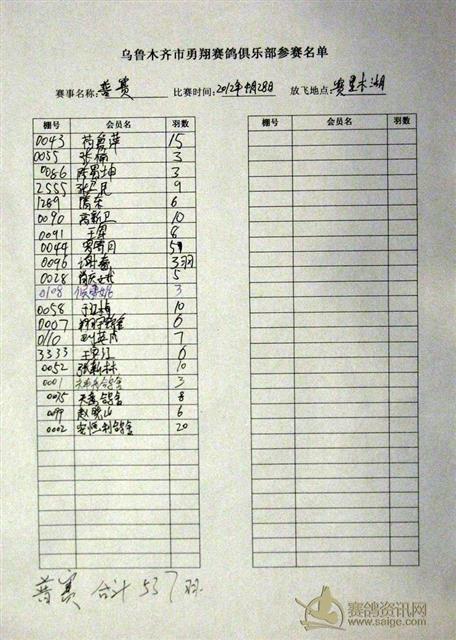 乌鲁木齐市勇翔赛鸽俱乐部参赛名单
赛事名称: 普赛 比赛时间: 2012年4月28日 放飞地点: 赛里木湖
棚号 会员名 羽数 棚号 会员名 羽数
0043 15
0055 张 3
0086 坤 3
2555 张 民 9
1289 陈东 6
0090 高新卫 10
0091 王军 8
0044
0096 谢 3羽
0028 5
0108 3
0058 10
0007 鸽舍 6
0110 刘英 7
3333 王 江 6
0052 张新林 10
0001 鸽舍 3
0075 天 鸽舍 8
0099 赵 山 6
0002 安恒利鸽舍 20
普赛 合计 537羽
赛鸽资讯网
www.saige.com